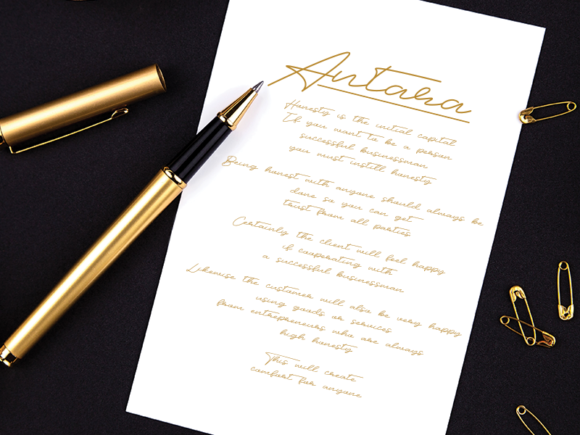 Antara
Honesty is the initial capital
If you want to be a person
successful businessman
you must instill honesty
Being honest with anyone should always be
done so you can get
trust from all parties
Certainly the client will feel happy
if cooperating with
a successful businessman
Likewise the customer will also be very happy
using goods or services
from entrepreneurs who are always
high honesty
This will create
comfort for anyone